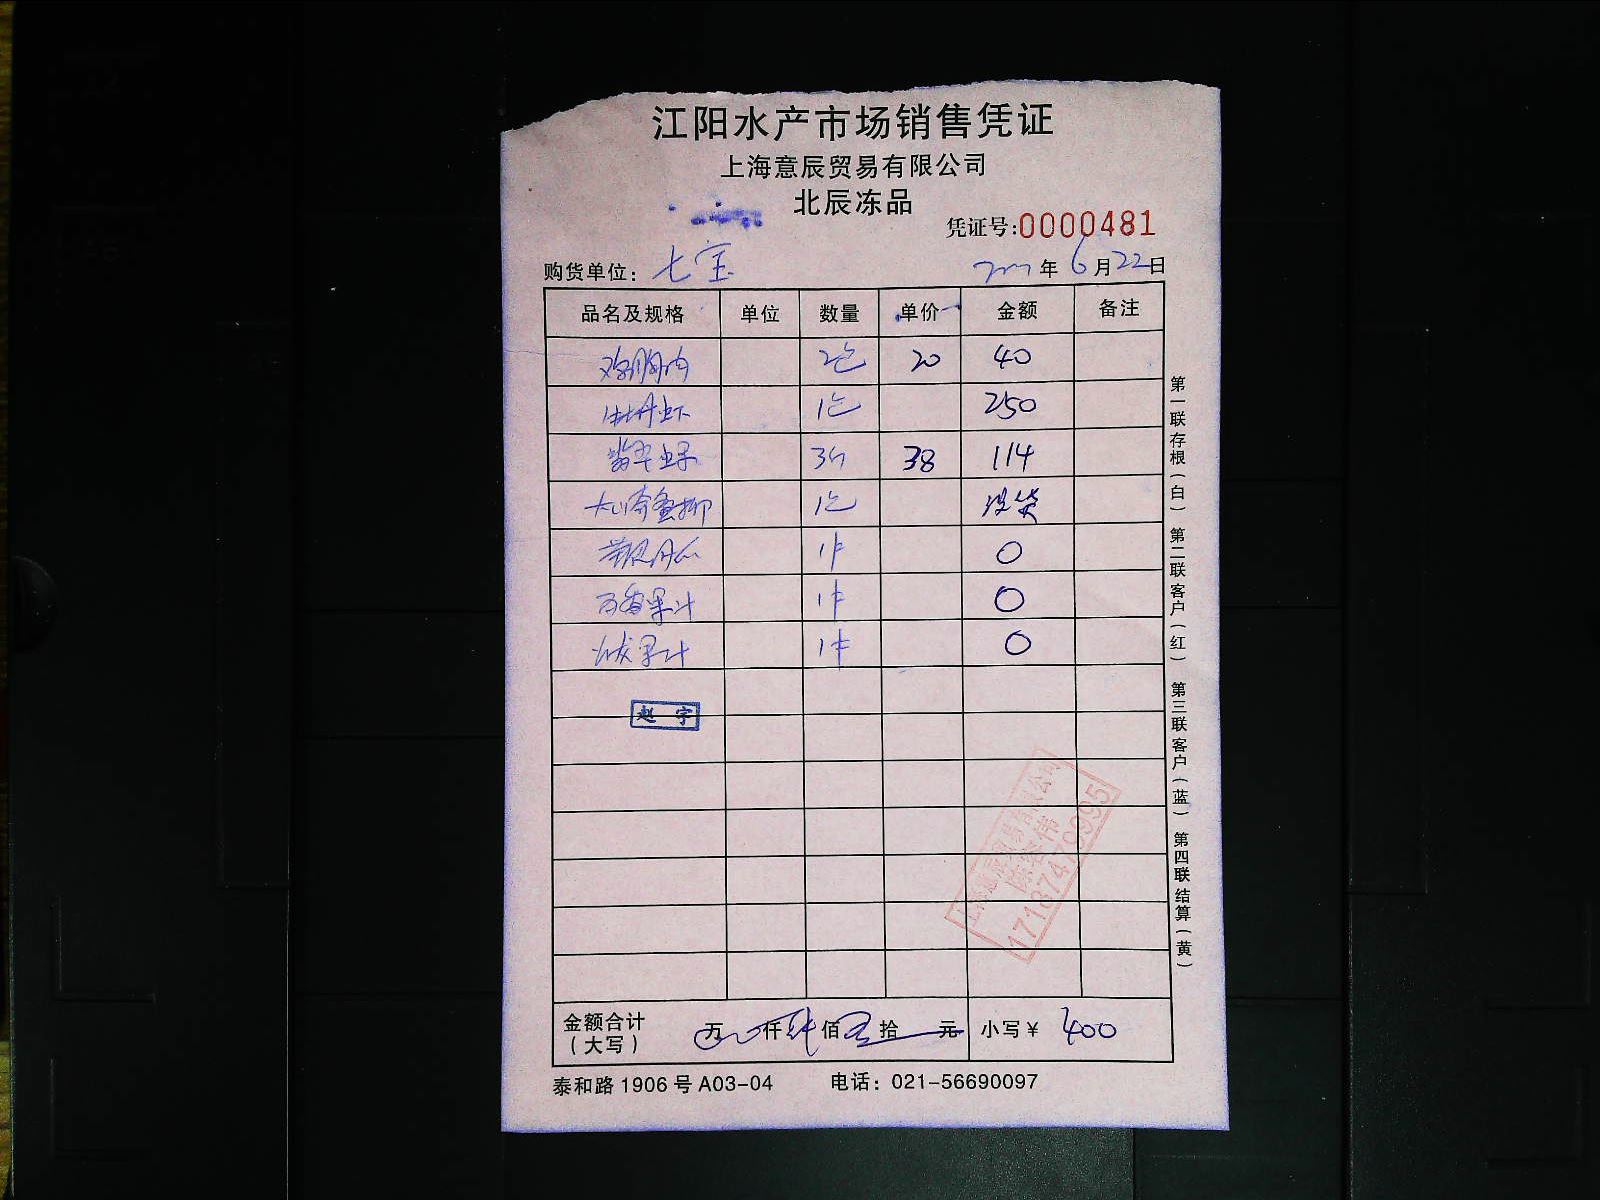 江阳水产市场销售凭证
上海意辰贸易有限公司
北辰冻品
凭证号:0000481
购货单位: 七宝 年 6月22日
品名及规格 单位 数量 单价 金额 备注
鸡胸肉 2包 20 40
牡丹虾 1包 250
翡翠螺 3斤 38 114
1包 没货
1件 0
百香果汁 1件 0
火龙果汁 1件 0
赵宇
17187470995
金额合计 万 仟 佰 拾 元 小写¥ 400
(大写)
泰和路1906号A03-04 电话: 021-56690097
第一联存根(白) 第二联客户(红) 第三联客户(蓝) 第四联结算(黄)